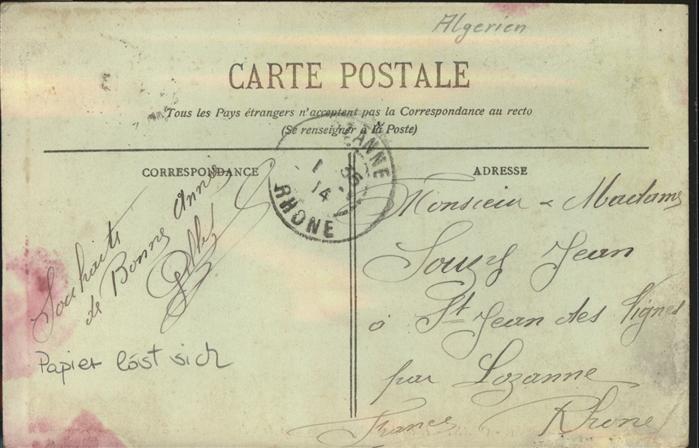 Algerien
CARTE POSTALE
Tous les Pays étrangers n'acceptent pas la Correspondance au recto
(Se renseigner à la Poste)
CORRESPONDANCE
ADRESSE
LOZANNE
1 35
14
RHONE
Souhaits
de Bonne Année
Papier löst sich
Monsieur & Madame
Jean
à St Jean des Vignes
par Lozanne
France Rhone